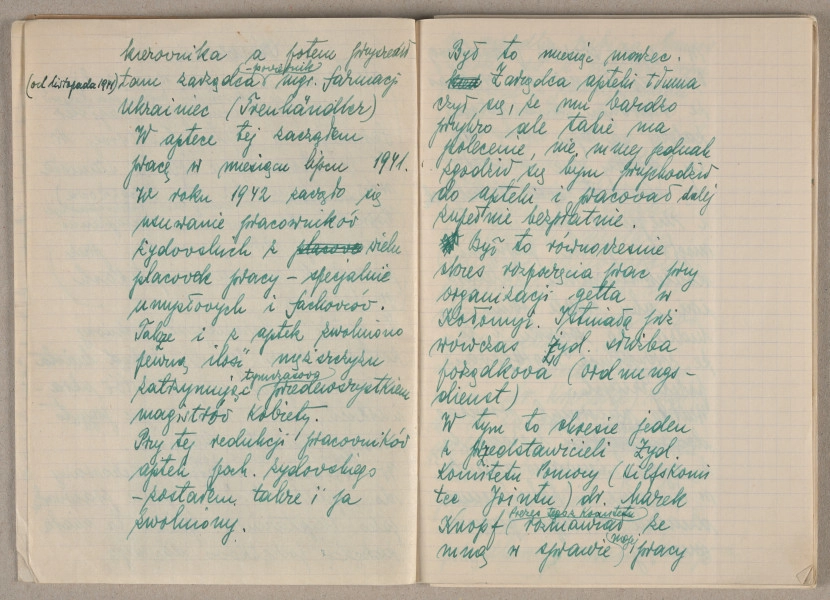 kierownika a potem przyszedł
(od listopada 1941) tam zarządca - powiernik mgr. farmacji
Ukrainiec (Treuhändler)
W aptece tej zacząłem
pracę w miesiącu lipcu 1941.
W roku 1942 zaczęło się
usuwanie pracowników
żydowskich z wielu
placówek pracy – specjalnie
umysłowych i fachowców.
Także i z aptek zwolniono
pewną ilość mężczyzn
zatrzymując tymczasowo przedewszystkiem
magistrów kobiety.
Przy tej redukcji pracowników
aptek poch. żydowskiego
– zostałem także i ja
zwolniony.
Był to miesiąc marzec.
Zarządca apteki tłuma
czył się, że mu bardzo
przykro ale takie ma
polecenie, nie mniej jednak
zgodził się bym przychodził
do apteki i pracował dalej
zupełnie bezpłatnie.
Był to równocześnie
okres rozpoczęcia prac przy
organizacji getta w
Kołomyi. Istniała już
wówczas żyd. służba
porządkowa (ordnungs-
dienst)
W tym to okresie jeden
z przedstawicieli Żyd.
Komitetu Pomocy (Hilfskomi
tee Jointu) dr. Marek
Knopf Prezes tegoż Komitetu rozmawiał ze
mną w sprawie mojej pracy